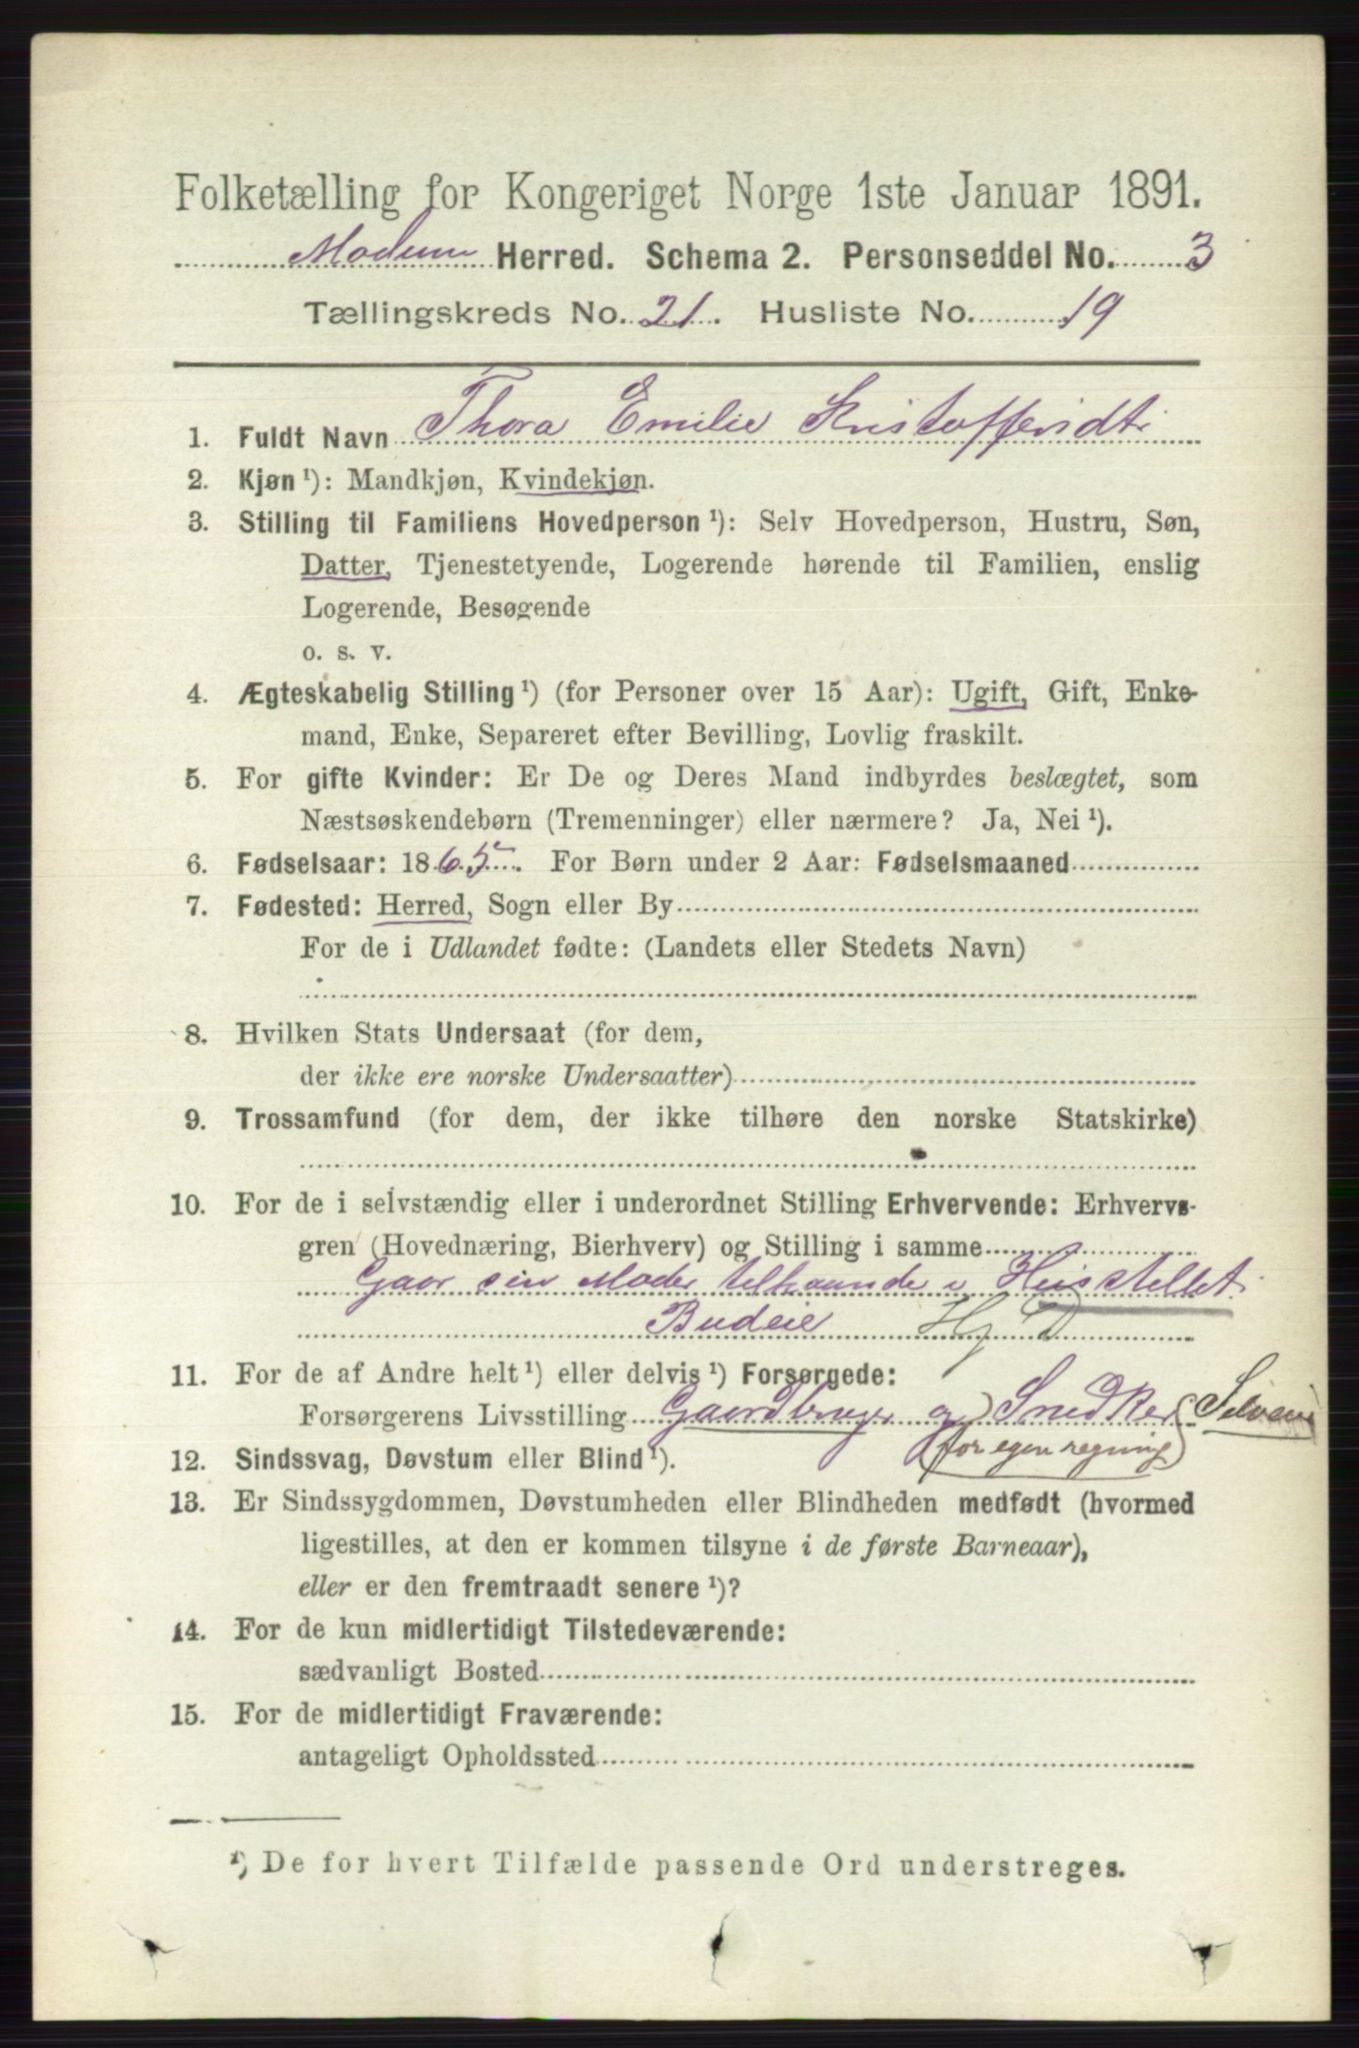 Folketælling for Kongeriget Norge 1ste Januar 1891.
Modum Herred. Schema 2. Personseddel No. 3
Tællingskreds No. 21. Husliste No. 19
1. Fuldt Navn Thora Emilie Kristoffersdt.
2. Kjøn ¹): Mandkjøn, Kvindekjøn.
3. Stilling til Familiens Hovedperson ¹): Selv Hovedperson, Hustru, Søn,
Datter, Tjenestetyende, Logerende hørende til Familien, enslig
Logerende, Besøgende
o. s. v.
4. Ægteskabelig Stilling ¹) (for Personer over 15 Aar): Ugift, Gift, Enke-
mand, Enke, Separeret efter Bevilling, Lovlig fraskilt.
5. For gifte Kvinder: Er De og Deres Mand indbyrdes beslægtet, som
Næstsøskendebørn (Tremenninger) eller nærmere? Ja, Nei ¹).
6. Fødselsaar: 1865. For Børn under 2 Aar: Fødselsmaaned
7. Fødested: Herred, Sogn eller By
For de i Udlandet fødte: (Landets eller Stedets Navn)
8. Hvilken Stats Undersaat (for dem,
der ikke ere norske Undersaatter)
9. Trossamfund (for dem, der ikke tilhøre den norske Statskirke)
10. For de i selvstændig eller i underordnet Stilling Erhvervende: Erhvervs-
gren (Hovednæring, Bierhverv) og Stilling i samme
Gaar sin Moder tilhaande i Husstellet.
Budeie Hg D
11. For de af Andre helt ¹) eller delvis ¹) Forsørgede:
Forsørgerens Livsstilling Gaardbruger og Snedker Selveier
(for egen regning)
12. Sindssvag, Døvstum eller Blind ¹).
13. Er Sindssygdommen, Døvstumheden eller Blindheden medfødt (hvormed
ligestilles, at den er kommen tilsyne i de første Barneaar),
eller er den fremtraadt senere ¹)?
14. For de kun midlertidigt Tilstedeværende:
sædvanligt Bosted
15. For de midlertidigt Fraværende:
antageligt Opholdssted
¹) De for hvert Tilfælde passende Ord understreges.